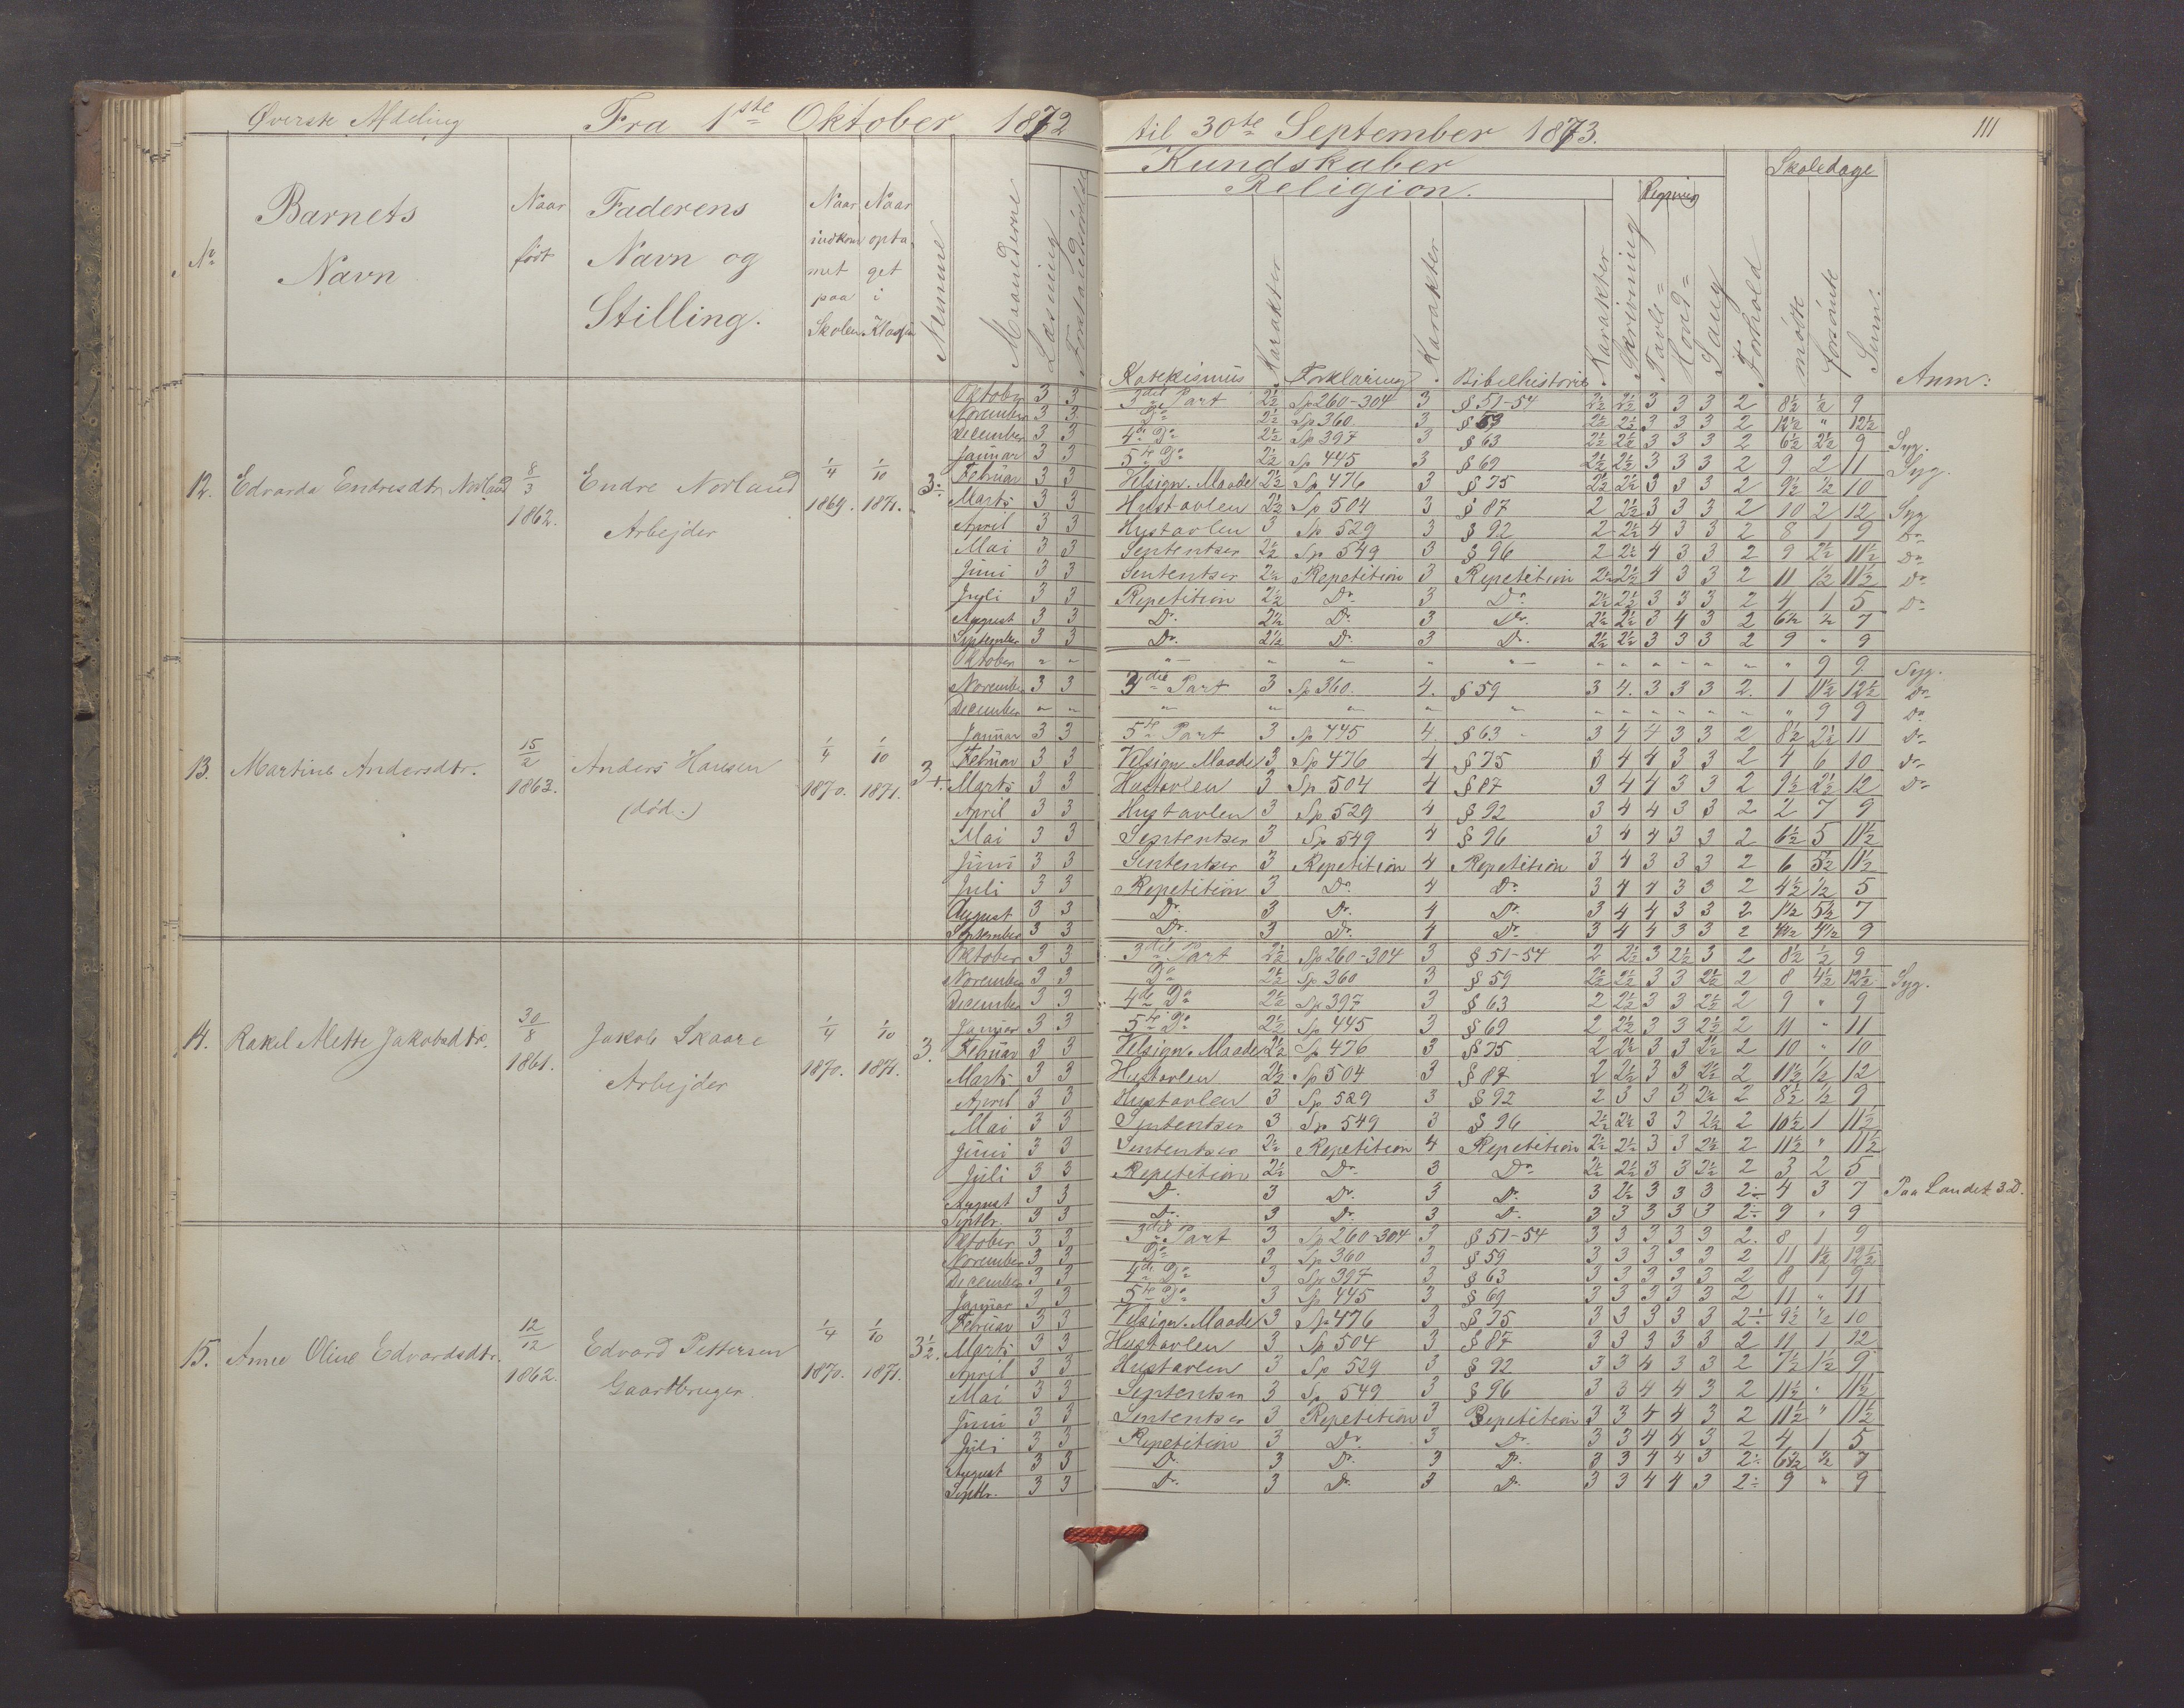 Øverste Afdeling Fra 1ste Oktober 1872 til 30te September 1873. 111
Kundskaber Skoledage
Religion. Regning
No Barnets Navn Naar født Faderens Navn og Stilling. Naar indkommet paa Skolen. Naar optaget i Klassen Nemme Maanederne Læsning Forstandsøvelse Katekismus Karakter Forklaring Karakter Bibelhistorie Karakter Skrivning Tavle= Hoved= Sang Forhold mødte forsømte Sum: Anm:
12. Edvarda Endresdtr. Norland 8/3 1862. Endre Norland Arbejder 1/4 1869. 1/10 1871. 3÷
Oktober 3 3 3die Part 2½ Sp 260-304 3 § 51-54 2½ 2½ 3 3 3 2 8½ ½ 9
November 3 3 Do 2½ Sp 360 3 § 59 2½ 2½ 3 3 3 2 12½ " 12½
December 3 3 4de Do 2½ Sp 397 3 § 63 2½ 2½ 3 3 3 2 6½ 2½ 9 Syg.
Januar 3 3 5te Do 2½ Sp 445 3 § 69 2½ 2½ 3 3 3 2 9 2 11 Syg.
Februar 3 3 Velsign. Maade 2½ Sp 476 3 § 75 2½ 2½ 3 3 3 2 9½ ½ 10
Marts 3 3 Hustavlen 2½ Sp 504 3 § 87 2 2½ 3 3 3 2 10 2 12 Syg
April 3 3 Hustavlen 3 Sp 529 3 § 92 2 2½ 4 3 3 2 8 1 9 Do
Mai 3 3 Sententser 2½ Sp 549 3 § 96 2 2½ 4 3 3 2 9 2½ 11½ Do
Juni 3 3 Sententser 2½ Repetition 3 Repetition 2½ 2½ 4 3 3 2 11 ½ 11½ Do
Juli 3 3 Repetition 2½ Do. 3 Do. 2½ 2½ 3 3 3 2 4 1 5 Do
August 3 3 Do. 2½ Do. 3 Do. 2½ 2½ 3 4 3 2 6½ ½ 7
September 3 3 Do. 2½ Do. 3 Do. 2½ 2½ 3 3 3 2 9 " 9
13. Martine Andersdtr. 15/2 1863. Anders Hansen (død.) 1/4 1870. 1/10 1871. 3+.
Oktober " " " " " " " " " " " " " " 9 9 Syg.
November 3 3 3die Part 3 Sp 360. 4. § 59 3 4. 3 3 3 2. 1 11½ 12½ Do
December " " " " " " " " " " " " " " 9 9 Do
Januar 3 3 5te Part 3 Sp 445 4. § 63 3 4 4 3 3 2 8½ 2½ 11 Do
Februar 3 3 Velsign. Maade 3 Sp 476 4 § 75 3 4 4 3 3 2 4 6 10 Do
Marts 3 3 Hustavlen 3 Sp 504 4 § 87 3 4 4 3 3 2 9½ 2½ 12 Do
April 3 3 Hustavlen 3 Sp 529 4 § 92 3 4 4 3 3 2 2 7 9
Mai 3 3 Sententser 3 Sp 549 4 § 96 3 4 4 3 3 2 6½ 5 11½
Juni 3 3 Sententser 3 Repetition 4 Repetition 3 4 3 3 3 2 6 5½ 11½
Juli 3 3 Repetition 3 Do. 4 Do. 3 4 4 3 3 2 4½ ½ 5
August 3 3 Do. 3 Do. 4 Do. 3 4 4 3 3 2 1½ 5½ 7
September 3 3 Do. 3 Do. 4 Do. 3 4 4 3 3 2 4½ 4½ 9
14. Rakel Mette Jakobsdtr. 30/8 1861. Jakob Skaare Arbejder 1/4 1870. 1/10 1871. 3.
Oktober 3 3 3die Part 2½ Sp 260-304 3 § 51-54 2 2½ 3 2½ 3 2 8½ ½ 9
November 3 3 Do 2½ Sp 360 3 § 59 2½ 2½ 3 3 2½ 2 8 4½ 12½ Syg.
December 3 3 4de Do 2½ Sp 397 3 § 63 2 2½ 3 3 2½ 2 9 " 9
Januar 3 3 5te Do 2½ Sp 445 3 § 69 2 2½ 3 3 2½ 2 11 " 11
Februar 3 3 Velsign. Maade 2½ Sp 476 3 § 75 2 2½ 3 3 2½ 2 10 " 10
Marts 3 3 Hustavlen 2½ Sp 504 3 § 87 2 2½ 3 3 2½ 2 11½ ½ 12
April 3 3 Hustavlen 3 Sp 529 3 § 92 2 3 3 3 2½ 2 8½ ½ 9
Mai 3 3 Sententser 3 Sp 549 3 § 96 2½ 2½ 3 3 2½ 2 10½ 1 11½
Juni 3 3 Sententser 2½ Repetition 4 Repetition 2½ 2½ 3 3 2½ 2 11½ " 11½
Juli 3 3 Repetition 2½ Do. 3 Do. 2½ 2½ 3 3 2½ 2 3 2 5
August 3 3 Do. 3 Do. 3 Do. 3 2½ 3 3 3 2÷ 4 3 7 Paa Landet 3 D.
Septbr. 3 3 Do. 3 Do. 3 Do. 3 3 3 3 3 2÷ 9 " 9
15. Anne Oline Edvardsdtr. 12/12 1862. Edvard Pettersen Gaardbruger. 1/4 1870. 1/10 1871. 3½.
Oktober 3 3 3die Part 3 Sp 260-304 3 § 51-54 3 3 3 3 3 2. 8 1 9
November 3 3 Do 3 Sp 360 3 § 59 3 3 3 3 3 2 11 1½ 12½
December 3 3 4de Do 3 Sp 397 3 § 63 3 3 3 3 3 2 8 1 9
Januar 3 3 5te Do 3 Sp 445 3 § 69 3 3 3 3 3 2 11 " 11
Februar 3 3 Velsign. Maade 3 Sp 476 3 § 75 3 3 3 3 3 2÷ 9½ ½ 10
Marts 3 3 Hustavlen 3 Sp 504 3 § 87 3 3 3 3 3 2 11 1 12
April 3 3 Hustavlen 3 Sp 529 3 § 92 3 3 4 3 3 2 7½ 1½ 9
Mai 3 3 Sententser 3 Sp 549 3 § 96 3 3 4 4 3 2 11½ " 11½
Juni 3 3 Sententser 3 Repetition 3 Repetition 3 3 4 4 3 2 11½ " 11½
Juli 3 3 Repetition 3 Do. 3 Do. 3 3 4 4 3 2 4 1 5
August 3 3 Do. 3 Do. 3 Do. 3 3 4 4 3 2÷ 6½ ½ 7
Septbr. 3 3 Do. 3 Do. 3 Do. 3 3 4 4 3 2÷ 9 " 9